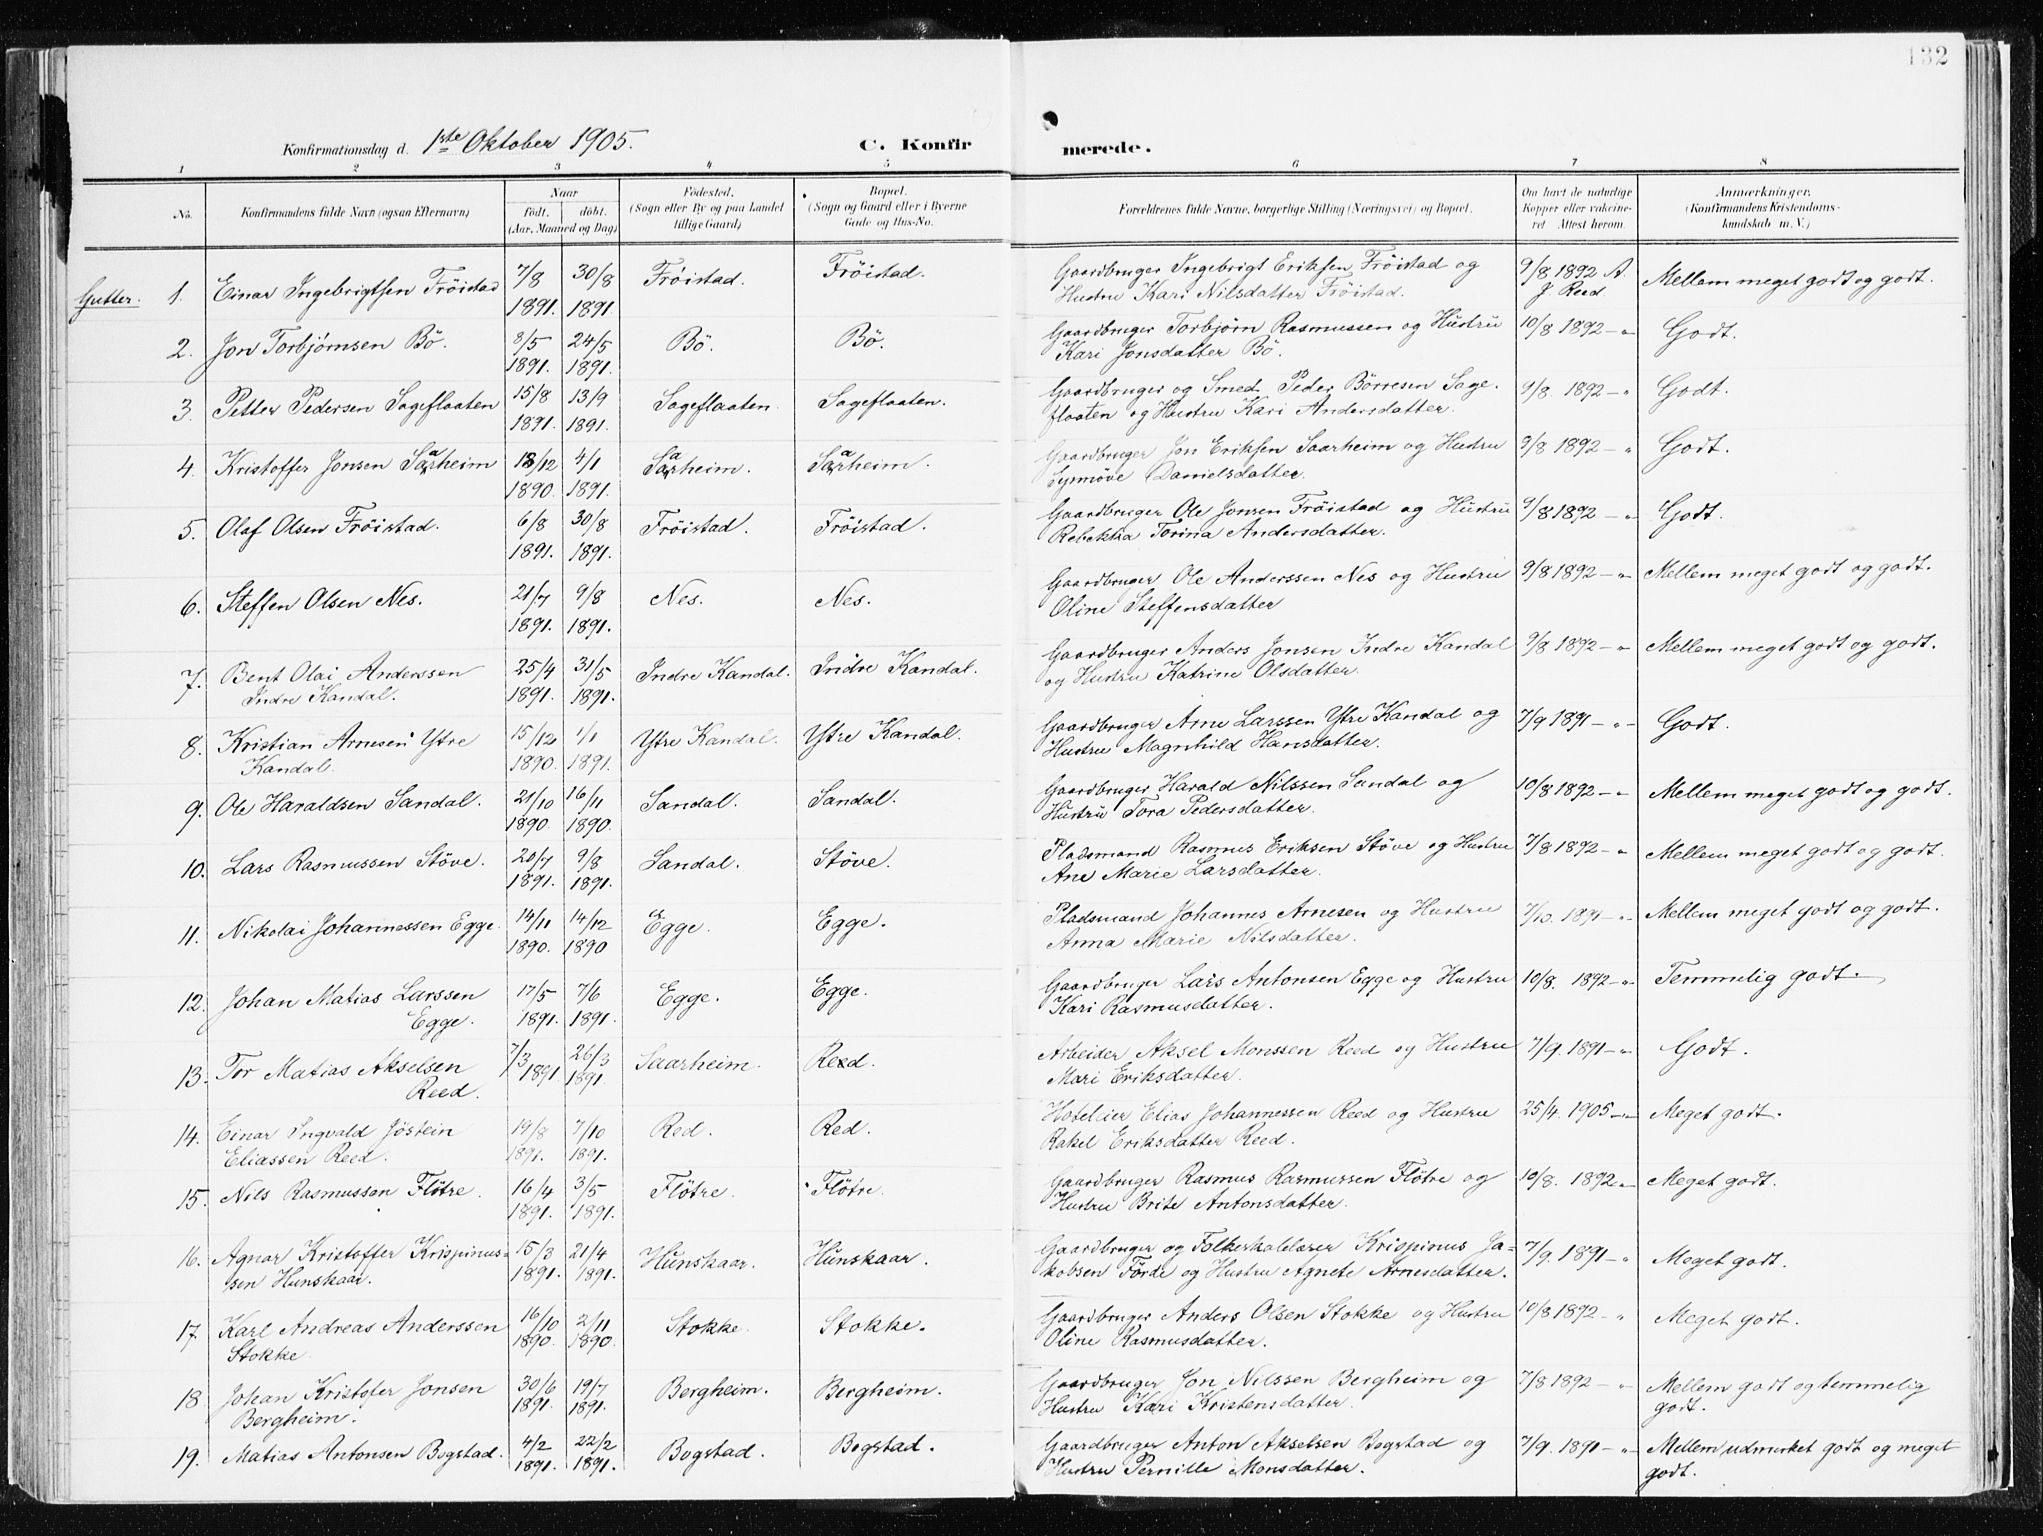 132
Konfirmationsdag d. 1ste Oktober 1905. C. Konfirmerede.
1 2 3 4 5 6 7 8
No. Konfirmandens fulde Navn (ogsaa Efternavn) Naar födt. döbt. (Aar, Maaned og Dag) Födested. (Sogn eller By og paa Landet tillige Gaard) Bopæl. (Sogn og Gaard eller i Byerne Gade og Hus-No. Forældrenes fulde Navne, borgerlige Stilling (Næringsvei) og Bopæl. Om havt de naturlige Kopper eller vakcineret Attest herom. Anmærkninger. (Konfirmandens Kristendomskundskab m. V.)
Gutter. 1. Einar Ingebrigtsen Fröistad 7/8 1891. 30/8 1891. Fröistad. Fröistad. Gaardbruger Ingebrigt Eriksen Fröistad og
Hustru Kari Nilsdatter Fröistad. 9/8 1892 A. J. Reed Mellem meget godt og godt.
2. Jon Torbjørnsen Bö. 8/5 1891. 24/5 1891. Bö. Bö. Gaardbruger Torbjörn Rasmussen og Hustru
Kari Jonsdatter Bö. 10/8 1892 - " Godt.
3. Petter Pedersen Sageflaaten 15/8 1891. 13/9 1891. Sageflaaten. Sageflaaten. Gaardbruger og Smed Peder Börresen Sage-
flaaten og Hustru Kari Andersdatter. 9/8 1892 - " Godt.
4. Kristoffer Jonsen Saarheim 18/12 1890. 4/1 1891. Saarheim. Saarheim. Gaardbruger Jon Eriksen Saarheim og Hustru
Synnöve Danielsdatter. 9/8 1892 - " Godt.
5. Olaf Olsen Fröistad. 6/8 1891. 30/8 1891. Fröistad. Fröistad. Gaardbruger Ole Jonsen Fröistad og Hustru
Rebekka Torina Andersdatter. 9/8 1892 - " Godt.
6. Steffen Olsen Nes. 21/7 1891. 9/8 1891. Nes. Nes. Gaardbruger Ole Anderssen Nes og Hustru
Oline Steffensdatter 9/8 1892 - " Mellem meget godt og godt.
7. Bent Olai Anderssen
Indre Kandal. 25/4 1891. 31/5 1891. Indre Kandal. Indre Kandal. Gaardbruger Anders Jonsen Indre Kandal
og Hustru Katrine Olsdatter. 9/8 1892 - " Mellem meget godt og godt.
8. Kristian Arnesen Ytre
Kandal. 15/12 1890. 1/1 1891. Ytre Kandal. Ytre Kandal. Gaardbruger Arne Larssen Ytre Kandal og
Hustru Magnhild Hansdatter. 7/9 1891 - " Godt.
9. Ole Haraldsen Sandal. 21/10 1890. 16/11 1890. Sandal. Sandal. Gaardbruger Harald Nilssen Sandal og
Hustru Tora Pedersdatter. 10/8 1892 - " Mellem meget godt og godt.
10. Lars Rasmussen Stöve. 20/7 1891. 9/8 1891. Sandal. Stöve. Pladsmand Rasmus Eriksen Stöve og Hustru
Ane Marie Larsdatter. 7/8 1892 - " Mellem meget godt og godt.
11. Nikolai Johannessen Egge. 14/11 1890. 14/12 1890 Egge. Egge. Pladsmand Johannes Arnesen og Hustru
Anna Marie Nilsdatter. 7/10. 1891 - " Mellem meget godt og godt.
12. Johan Matias Larssen
Egge. 17/5 1891. 7/6 1891. Egge. Egge. Gaardbruger Lars Antonsen Egge og Hustru
Kari Rasmusdatter. 10/8. 1892 - " Temmelig godt.
13. Tor Matias Akselsen
Reed. 7/3 1891. 26/3 1891. Saarheim. Reed. Arbeider Aksel Monssen Reed og Hustru
Mari Eriksdatter. 7/9. 1891 - " Godt.
14. Einar Ingvald Jöstein
Eliassen Reed. 19/8 1891. 7/10 1891. Red. Red. Hotelier Elias Johannessen Reed og Hustru
Rakel Eriksdatter Reed. 25/4. 1905 - " Meget godt.
15. Nils Rasmussen Flötre. 16/4 1891. 3/5 1891. Flötre. Flötre. Gaardbruger Rasmus Rasmussen Flötre og
Hustru Brite Antonsdatter. 10/8. 1892 - " Meget godt.
16. Agnar Kristoffer Krispinus-
sen Hunskaar. 15/3 1891. 21/4 1891. Hunskaar. Hunskaar. Gaardbruger og Folkeskolelærer Krispinus Ja-
kobsen Förde og Hustru Agnete Arnesdatter. 7/9. 1891 - " Meget godt.
17. Karl Andreas Anderssen
Stokke. 16/10 1890. 2/11 1890. Stokke. Stokke. Gaardbruger Anders Olsen Stokke og Hustru
Oline Rasmusdatter. 10/8 1892 - " Meget godt.
18 Johan Kristofer Jonsen
Bergheim. 30/6 1891. 19/7 1891. Bergheim. Bergheim. Gaardbruger Jon Nilssen Bergheim og
Hustru Kari Kristensdatter. 7/8 1892 - " Mellem godt og temmelig
godt.
19. Matias Antonsen Bogstad. 4/2 1891. 22/2 1891. Bogstad. Bogstad. Gaardbruger Anton Akselsen Bogstad og
Hustru Pernille Monsdatter. 7/9. 1891 - " Mellem udmerket godt og meget
godt.